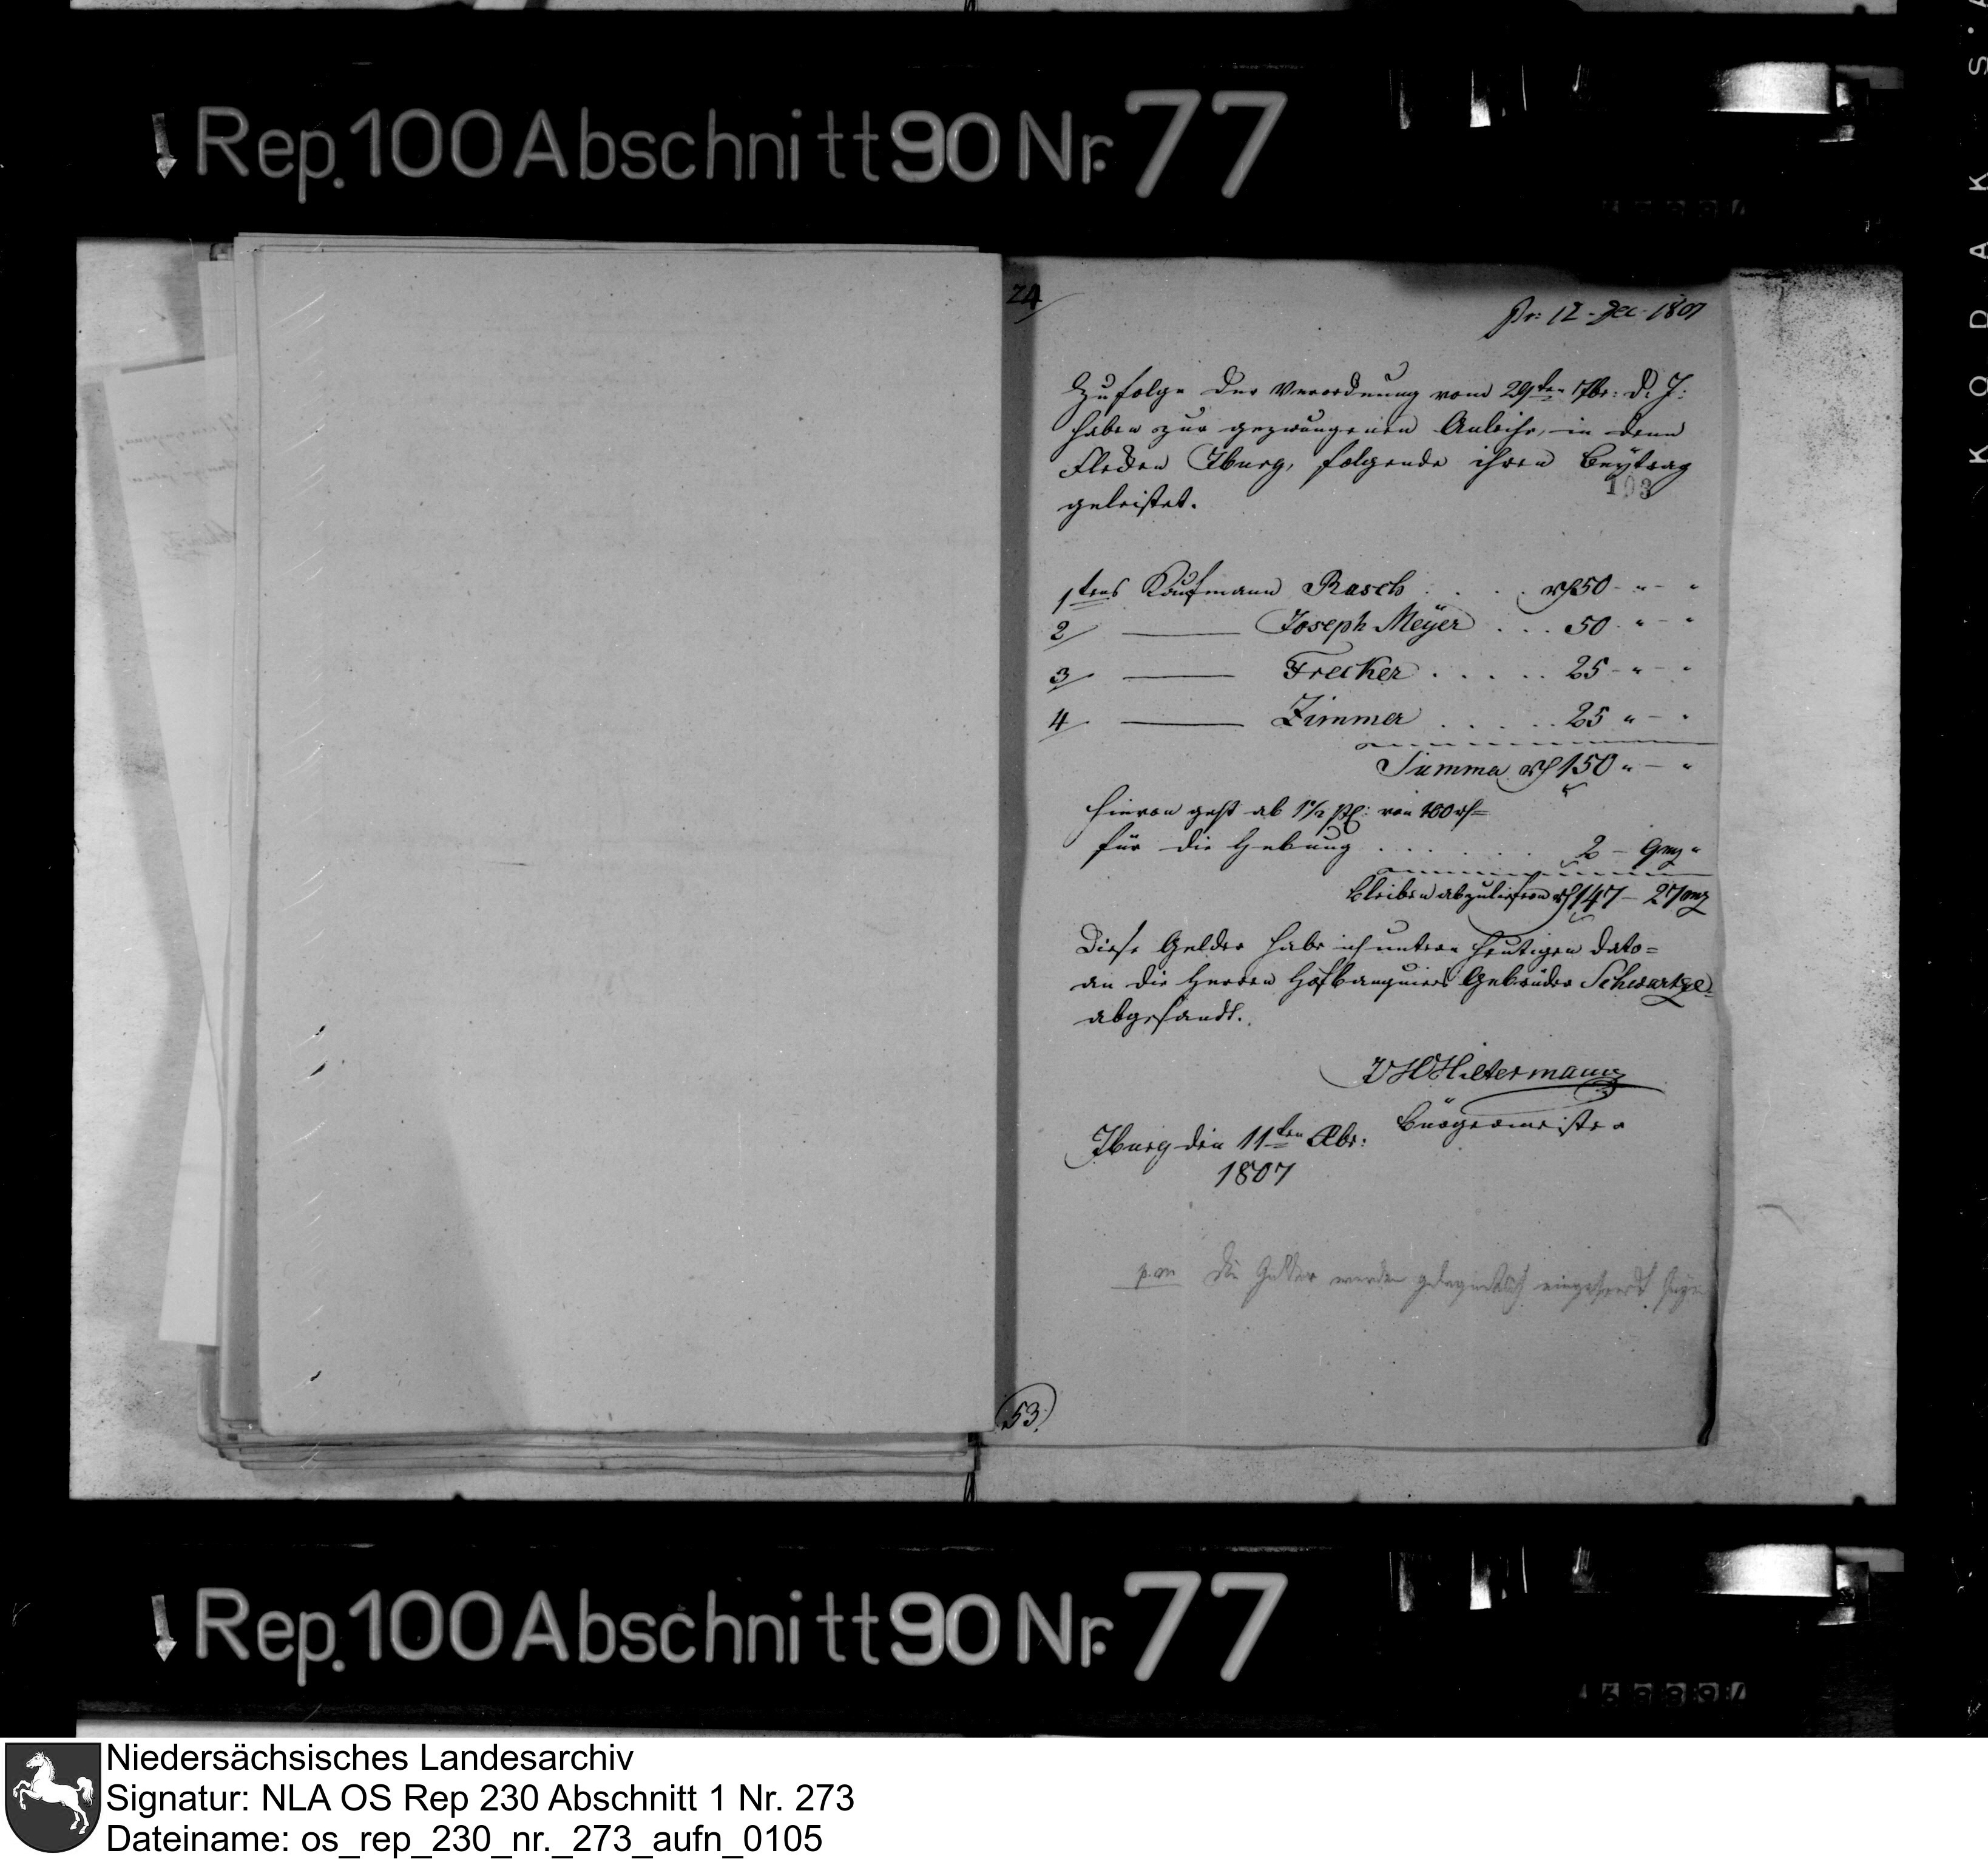 Rep. 100 Abschnitt 90 Nr. 77
24
Pr: 12 Dec. 1807
Zufolge der Verordnung vom 29ten 7br: d. J:
haben zur gezwungenen Anleihe, in dem
Flecken Iburg, folgende ihren Beytrag
193
geleistet.
1tens Kaufmann Rasch . . . . rth 50 - " - "
2/ ——— Joseph Meÿer . . . 50 " - "
3/ ——— Frecker . . . . . 25 - " - "
4/ ——— Zimmer . . . . . 25 " - "
Summa rth 150 " - "
hievon geht ab 1½ von 100 rth
für die Hebung . . . . . . 2 -
bleiben abzuliefern rth 147 - 27
Diese Gelder habe ich untern heutigen dato
an die Herren Hofbanquiers Gebrüder Schwartze
abgesandt.
Bürgermeister
Iburg den 11ten Xbr:
1807
p.m. Die Gelder werden gelegentlich
53.
Rep. 100 Abschnitt 90 Nr. 77
KODAK S.A
Niedersächsisches Landesarchiv
Signatur: NLA OS Rep 230 Abschnitt 1 Nr. 273
Dateiname: os_rep_230_nr._273_aufn_0105